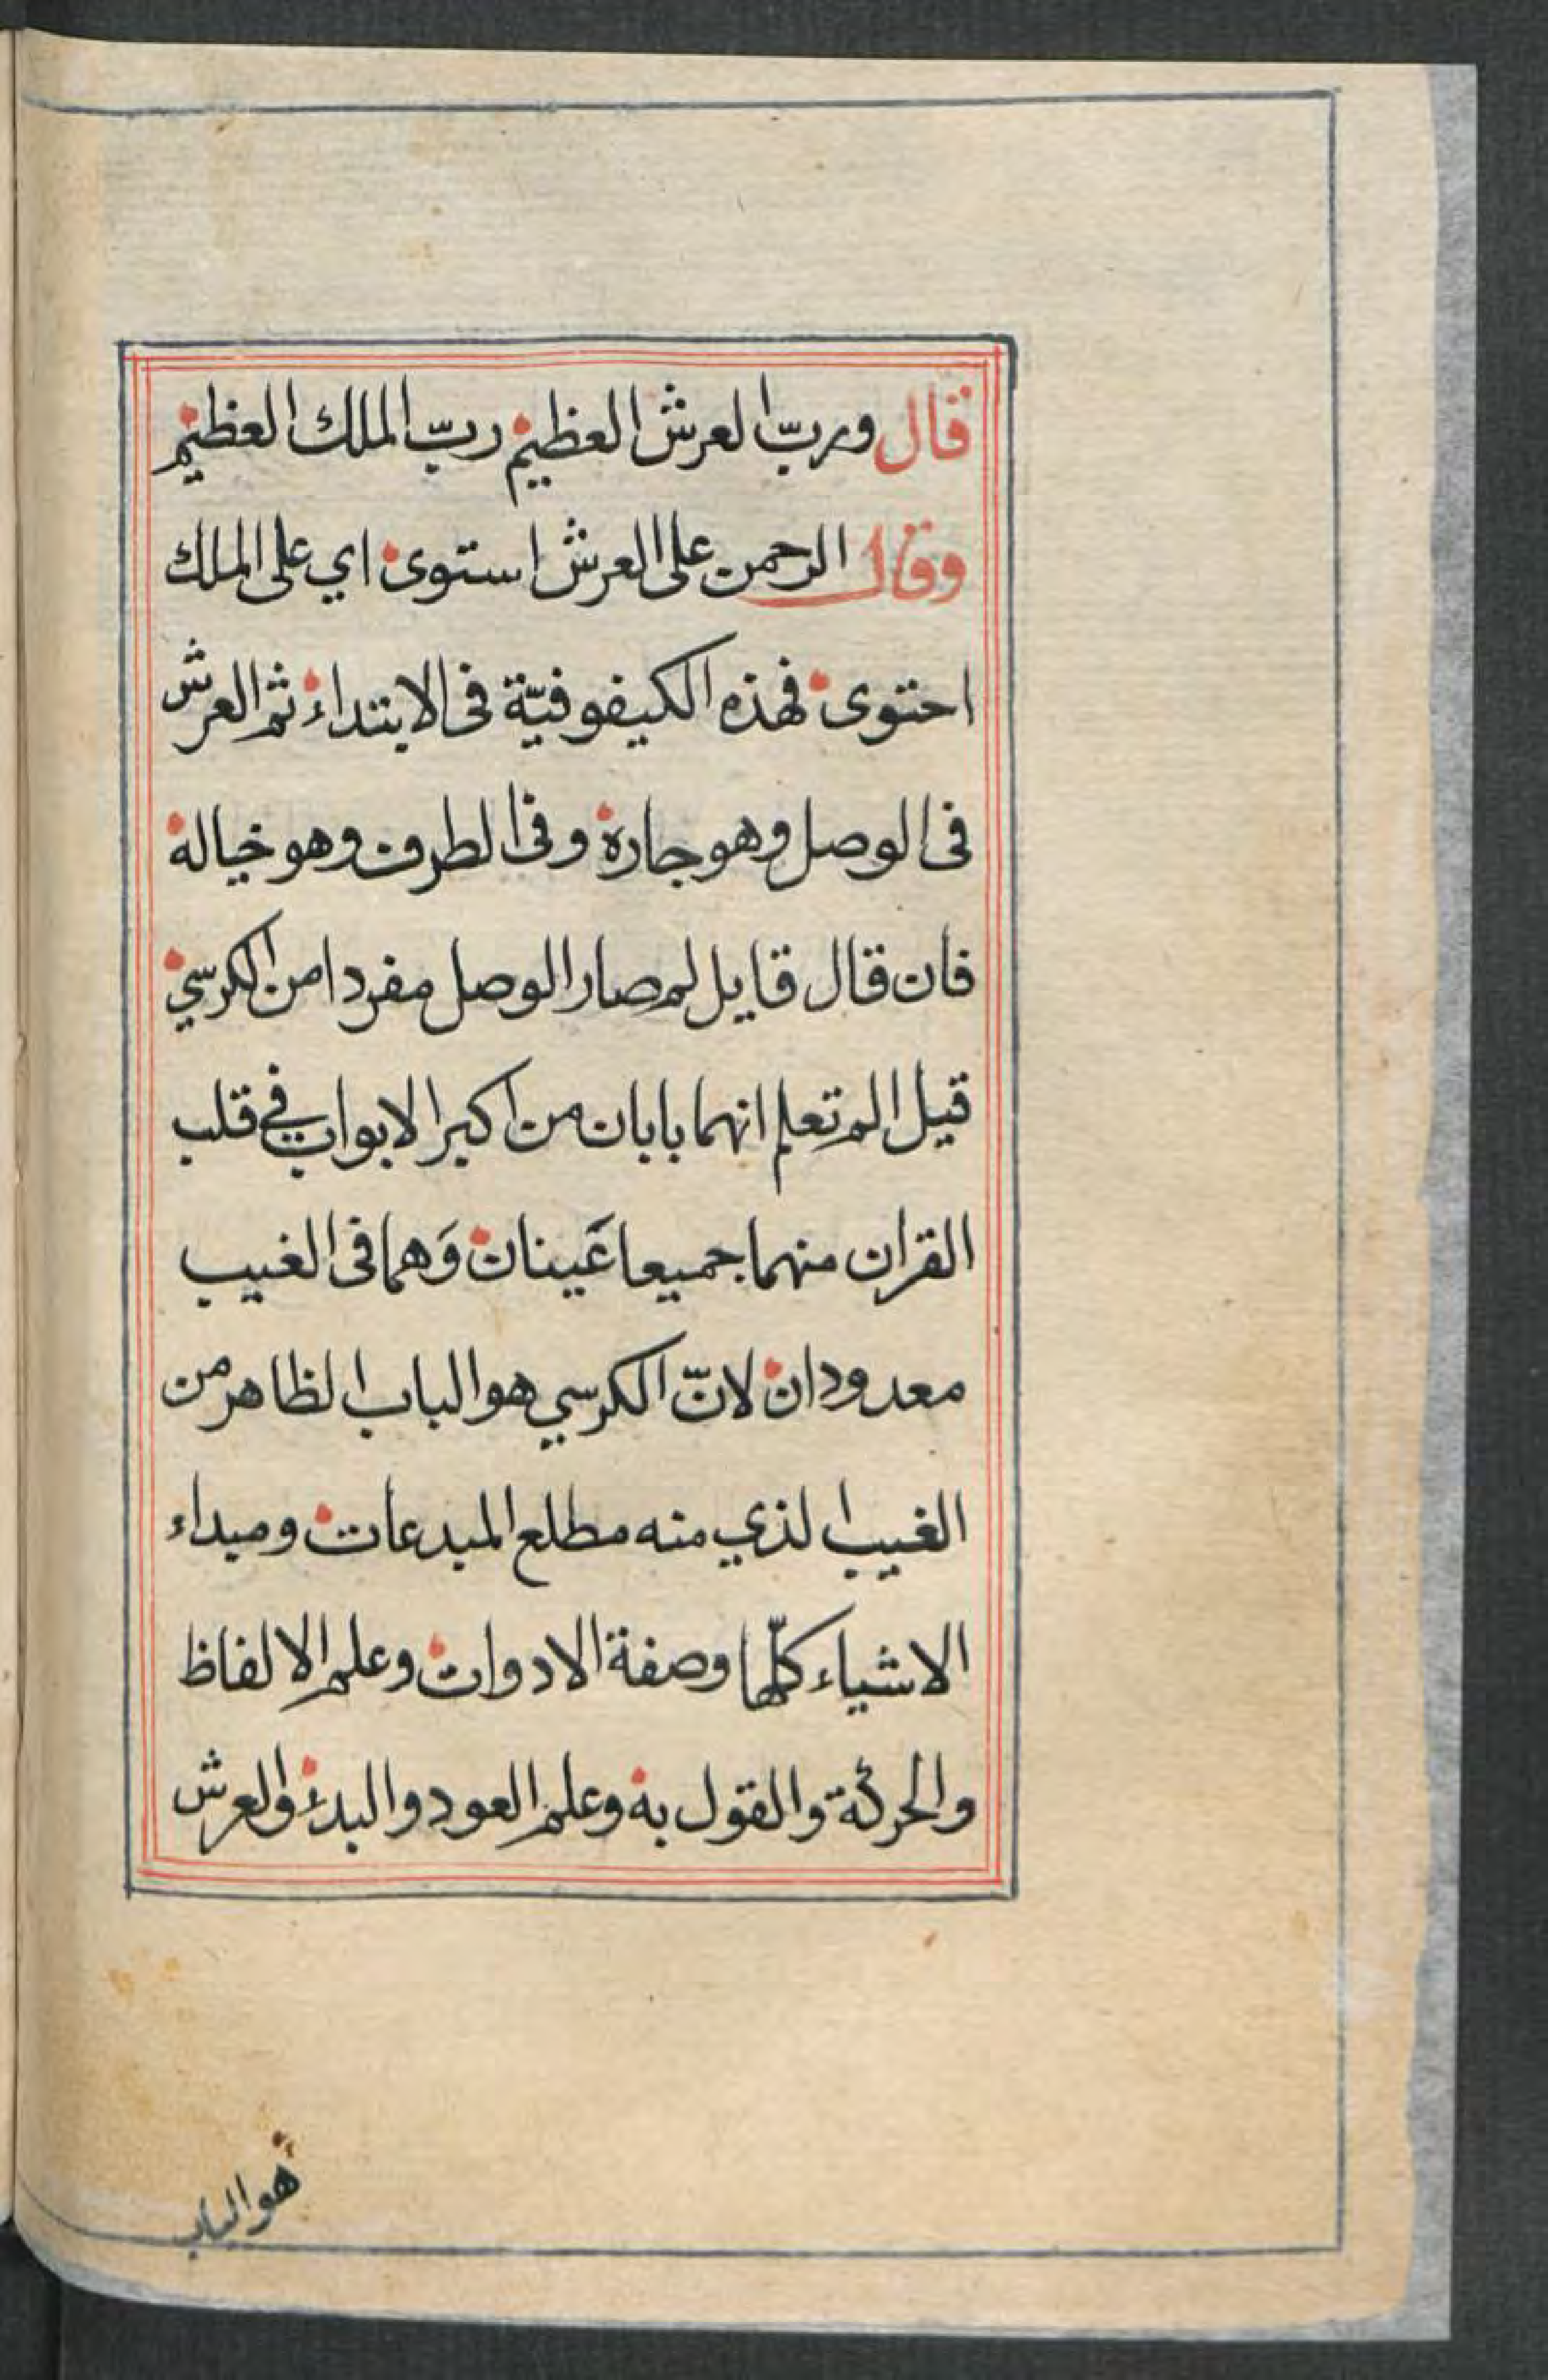 قال وربّ العرش العظيم ربّ الملك العظيم
وقال الرحمن على العرش استوى اي على الملك
احتوى فهذه الكيفوفيّة فى الابتداء ثم العرش
فى الوصل وهو جاره وفى الطرف وهو خياله
فان قال قايل لم صار الوصل مفردا من الكرسي
قيل الم تعلم انهما بابان من اكبر الابواب في قلب
القران منهما جميعا غَينان وَهما فى الغيب
معدودان لانّ الكرسي هو الباب الظاهر من
الغيب الذي منه مطلع المبدعات ومبداء
الاشياء كلّها وصفة الادوات وعلم الالفاظ
والحركة والقول به وعلم العود والبدء والعرش
هو الباب